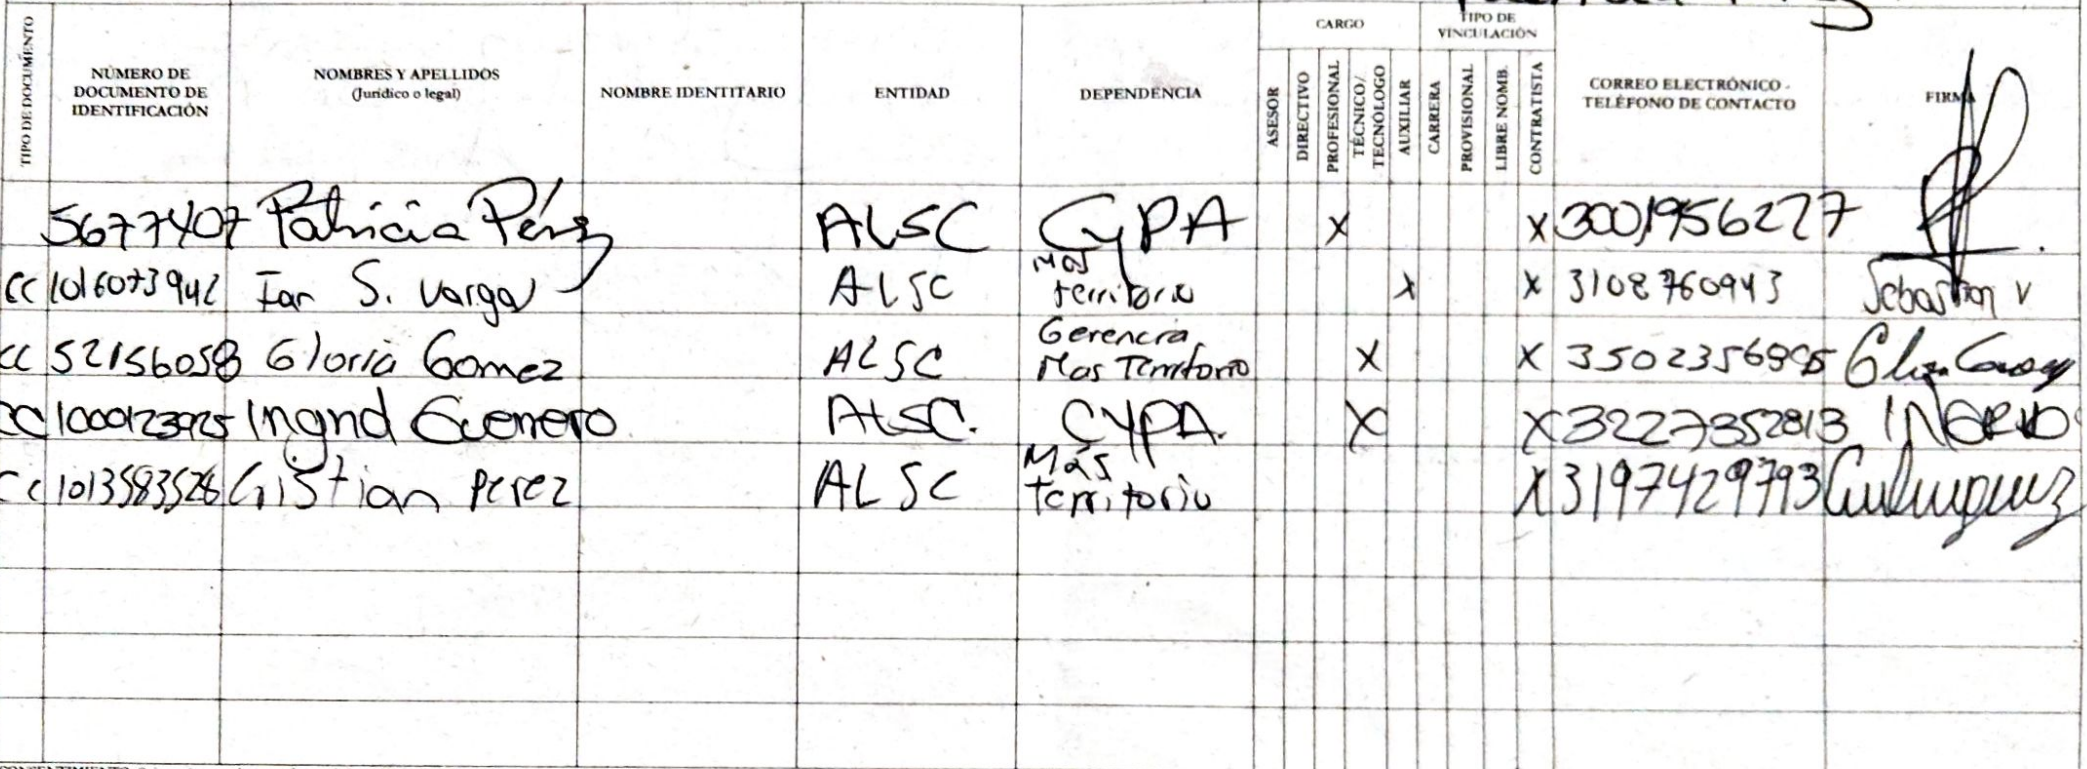 CARGO
TIPO DE
VINCULACIÓN
TIPO DE DOCUMENTO
NÚMERO DE
DOCUMENTO DE
IDENTIFICACIÓN
NOMBRES Y APELLIDOS
(Jurídico o legal)
NOMBRE IDENTITARIO
ENTIDAD
DEPENDENCIA
ASESOR
DIRECTIVO
PROFESIONAL
TÉCNICO/
TECNÓLOGO
AUXILIAR
CARRERA
PROVISIONAL
LIBRE NOMB.
CONTRATISTA
CORREO ELECTRÓNICO -
TELÉFONO DE CONTACTO
FIRMA
5677407 Patricia Pérez ALSC CYPA X X 3001956277
CC 1016073942 Ian S. Vargas ALSC Mas territorio X X 3108760943 Sebastian V
CC 52156058 Gloria Gomez ALSC Gerencia Mas Territorio X X
CC 1000123925 Ingrid Guerrero ALSC. CYPA X X 3227352813 INGRID
CC 1013583526 Cristian Perez ALSC Más territorio X 3197429793